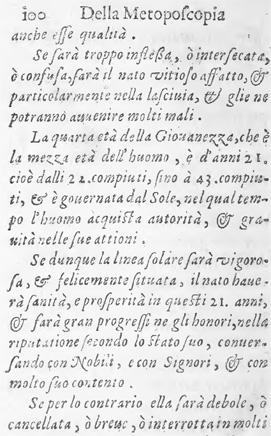 100 Della Metoposcopia
anche esse qualità.
Se sarà troppo inflessa, ò intersecata,
ò confusa, sarà il nato vitioso affatto, &
particolarmente nella lasciuia, & glie ne
potranno auuenire molti mali.
La quarta età della Giouanezza, che è
la mezza età dell'huomo, è d'anni 21.
cioè dalli 22. compiuti, sino à 43. compiu-
ti, & è gouernata dal Sole, nel qual tem-
po l'huomo acquista autorità, & gra-
uità nelle sue attioni.
Se dunque la linea solare sarà vigoro-
sa, & felicemente situata, il nato haue-
rà sanità, e prosperità in questi 21. anni,
& farà gran progressi ne gli honori, nella
riputatione secondo lo stato suo, conuer-
sando con Nobili, e con Signori, & con
molto suo contento.
Se per lo contrario ella sarà debole, ò
cancellata, ò breue, ò interrotta in molti